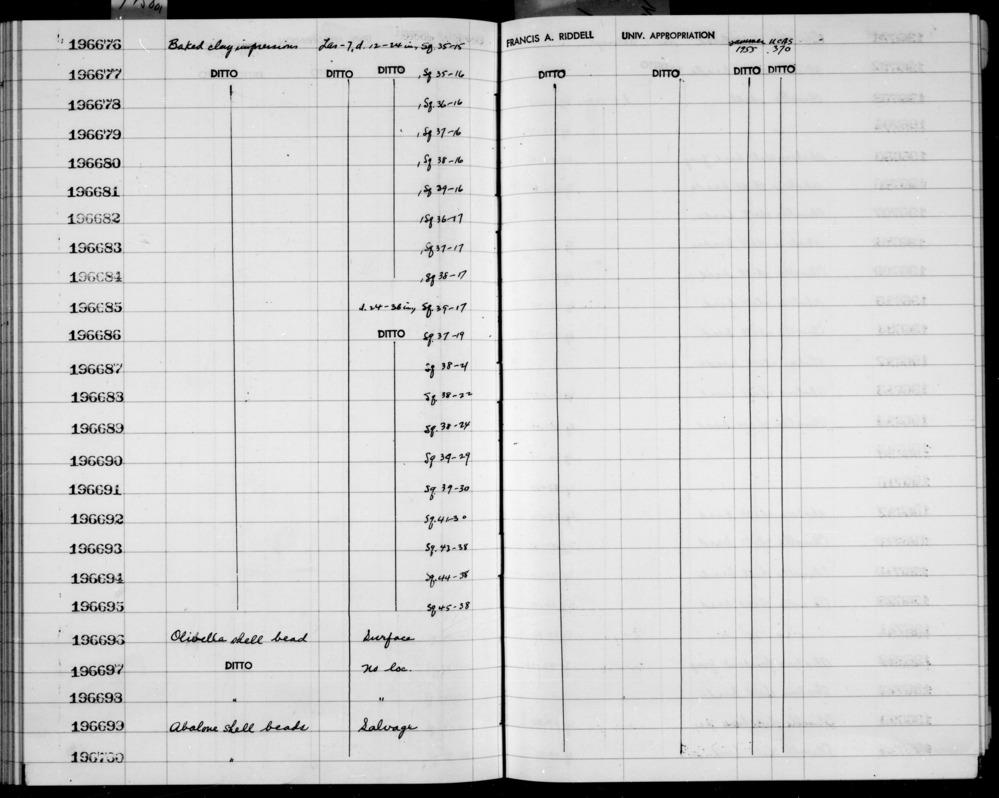 196676 Baked clay impressions Las-7, d. 12-24 in, Sq. 35-15 FRANCIS A. RIDDELL UNIV. APPROPRIATION summer 1955 UCAS 370
196677 DITTO DITTO DITTO , Sq 35-16 DITTO DITTO DITTO DITTO
196678 , Sq 36-16
196679 , Sq 37-16
196680 , Sq 38-16
196681 , Sq 39-16
196682 , Sq 36-17
196683 , Sq 37-17
196684 , Sq 38-17
196685 d. 24-36 in, Sq. 39-17
196686 DITTO Sq. 37-19
196687 Sq 38-21
196688 Sq. 38-22
196689 Sq. 38-24
196690 Sq 39-29
196691 Sq. 39-30
196692 Sq. 41-30
196693 Sq. 43-38
196694 Sq. 44-38
196695 Sq 45-38
196696 Olivella shell bead Surface
196697 DITTO No loc.
196698 " "
196699 Abalone shell beads Salvage
196700 "